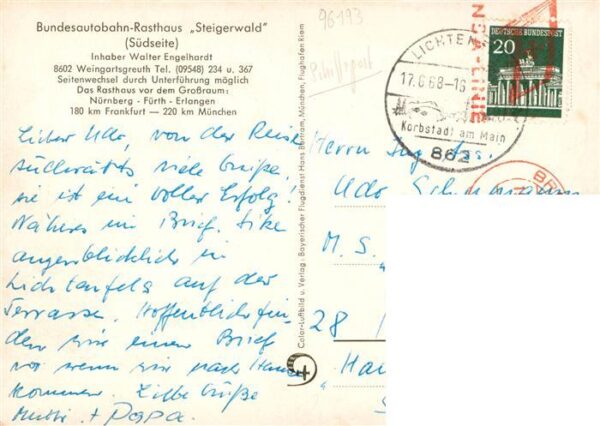 Bundesautobahn-Rasthaus „Steigerwald"
(Südseite)
Inhaber Walter Engelhardt
8602 Weingartsgreuth Tel. (09548) 234 u. 367
Seitenwechsel durch Unterführung möglich
Das Rasthaus vor dem Großraum:
Nürnberg - Fürth - Erlangen
180 km Frankfurt — 220 km München
Lieber Udo, von der Reise
südwärts viele Grüße,
sie ist ein voller Erfolg!
Näheres im Brief. Sitze
augenblicklich in
Lichtenfels auf der
Terrasse. Hoffentlich fin-
den wir einen Brief
vor wenn wir nach Hause
kommen. Liebe Grüße
Mutti + Papa.
Color-Luftbild u. Verlag: Bayerischer Flugdienst Hans Bertram, München, Flughafen Riem
96193
Schiffspost
LICHTEN
17.6.68-15
Korbstadt am Main
862
NSA-LINIE
DEUTSCHE BUNDESPOST
20
BR
Herrn Ing.
Udo
M. S.
28